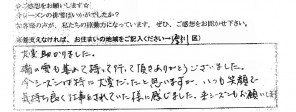 ☆ご感想をお聞かせください☆
今シーズンの排雪はいかがでしたか？
お客様の声が、私たちの原動力になっています。ぜひ、ご感想をお聞かせ下さい。
差支えなければ、お住まいの地域をご記入ください（清田区）
大変助かりました。
端の雪も集めて持って行って頂きありがとうございました。
今シーズンは特に大変だったと思いますが、いつも笑顔で
気持ち良く仕事をされていた様に感じました。来シーズンもお願いします